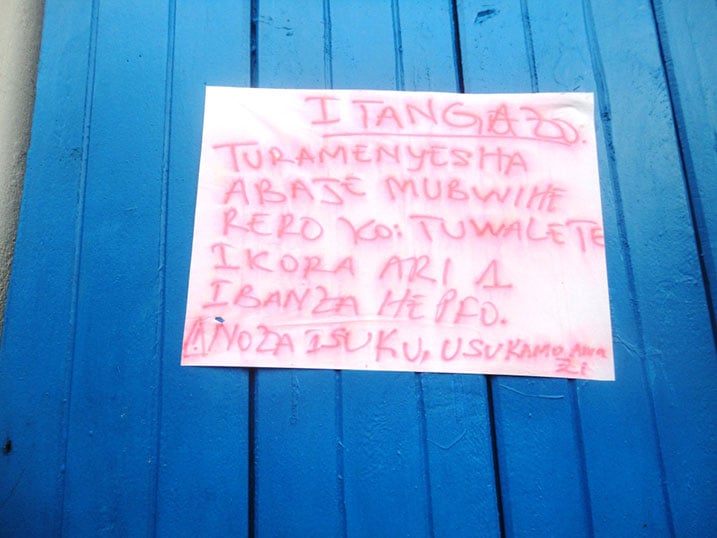 ITANGAZO:
TURAMENYESHA
ABAJE MUBWIHE
RERO KO: TUWALETE
IKORA ARI 1
IBANZA HEPFO.
ANOZA ISUKU, USUKAMO Ama
Zi